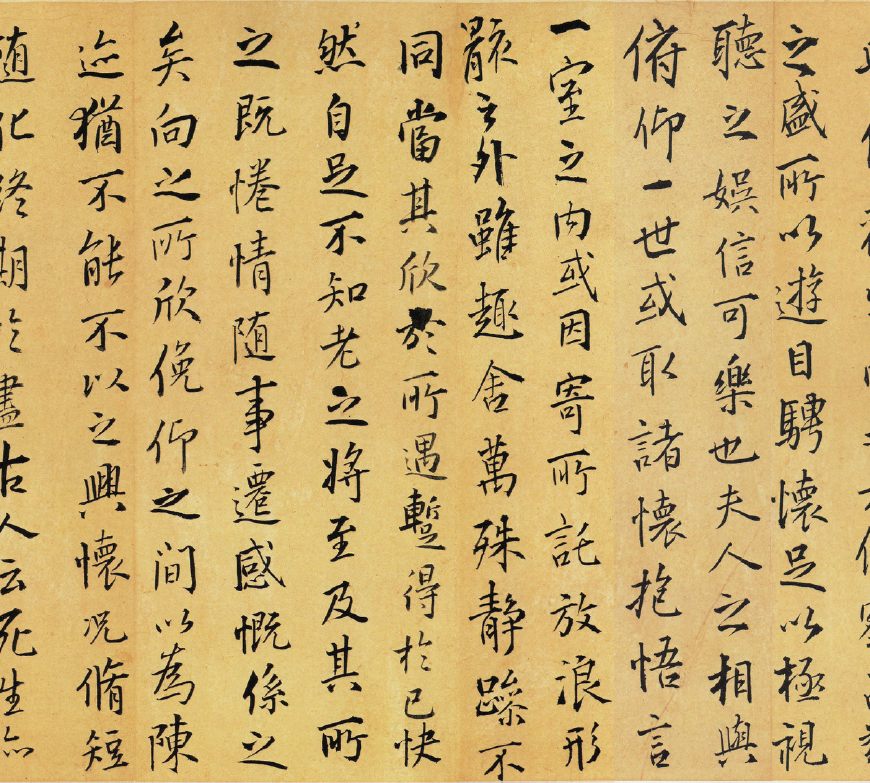 之盛所以遊目騁懷足以極視
聽之娛信可樂也夫人之相與
俯仰一世或取諸懷抱悟言
一室之內或因寄所託放浪形
骸之外雖趣舍萬殊靜躁不
同當其欣於所遇蹔得於己快
然自足不知老之將至及其所
之既惓情隨事遷感慨係之
矣向之所欣俛仰之間以為陳
迹猶不能不以之興懷況脩短
隨化終期於盡古人云死生亦